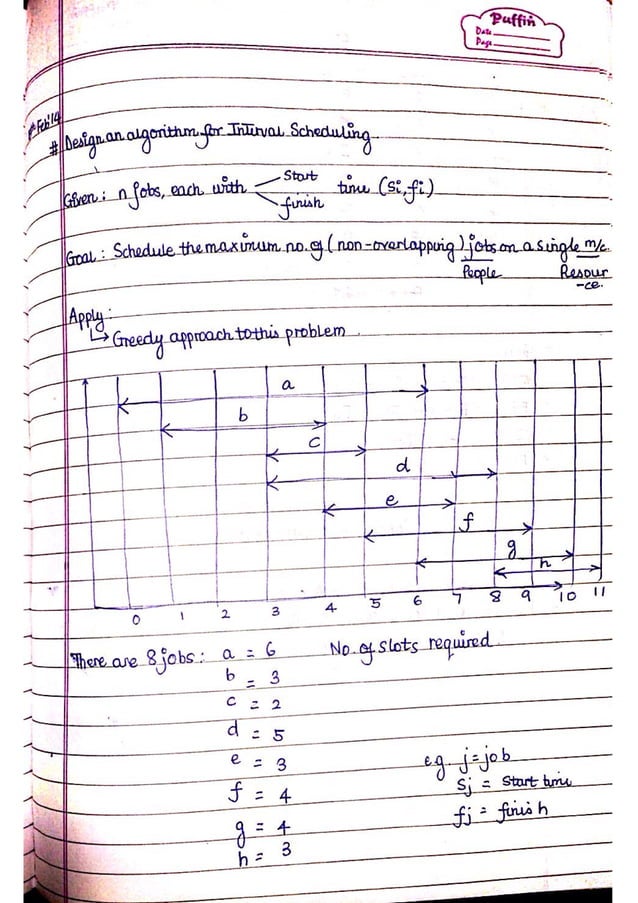 Puffin
Date
Page
Feb'14
# Design an algorithm for Interval Scheduling
Given: n jobs, each with start finish time (si, fi)
Goal: Schedule the maximum no. of (non-overlapping) jobs on a single m/c.
People Resour
-ce.
Apply:
↳ Greedy approach to this problem.
a
b
c
d
e
f
g
h
0 1 2 3 4 5 6 7 8 9 10 11
There are 8 jobs: a = 6 No. of slots required
b = 3
c = 2
d = 5
e = 3 e.g. j = job
f = 4 sj = start time
g = 4 fj = finish
h = 3